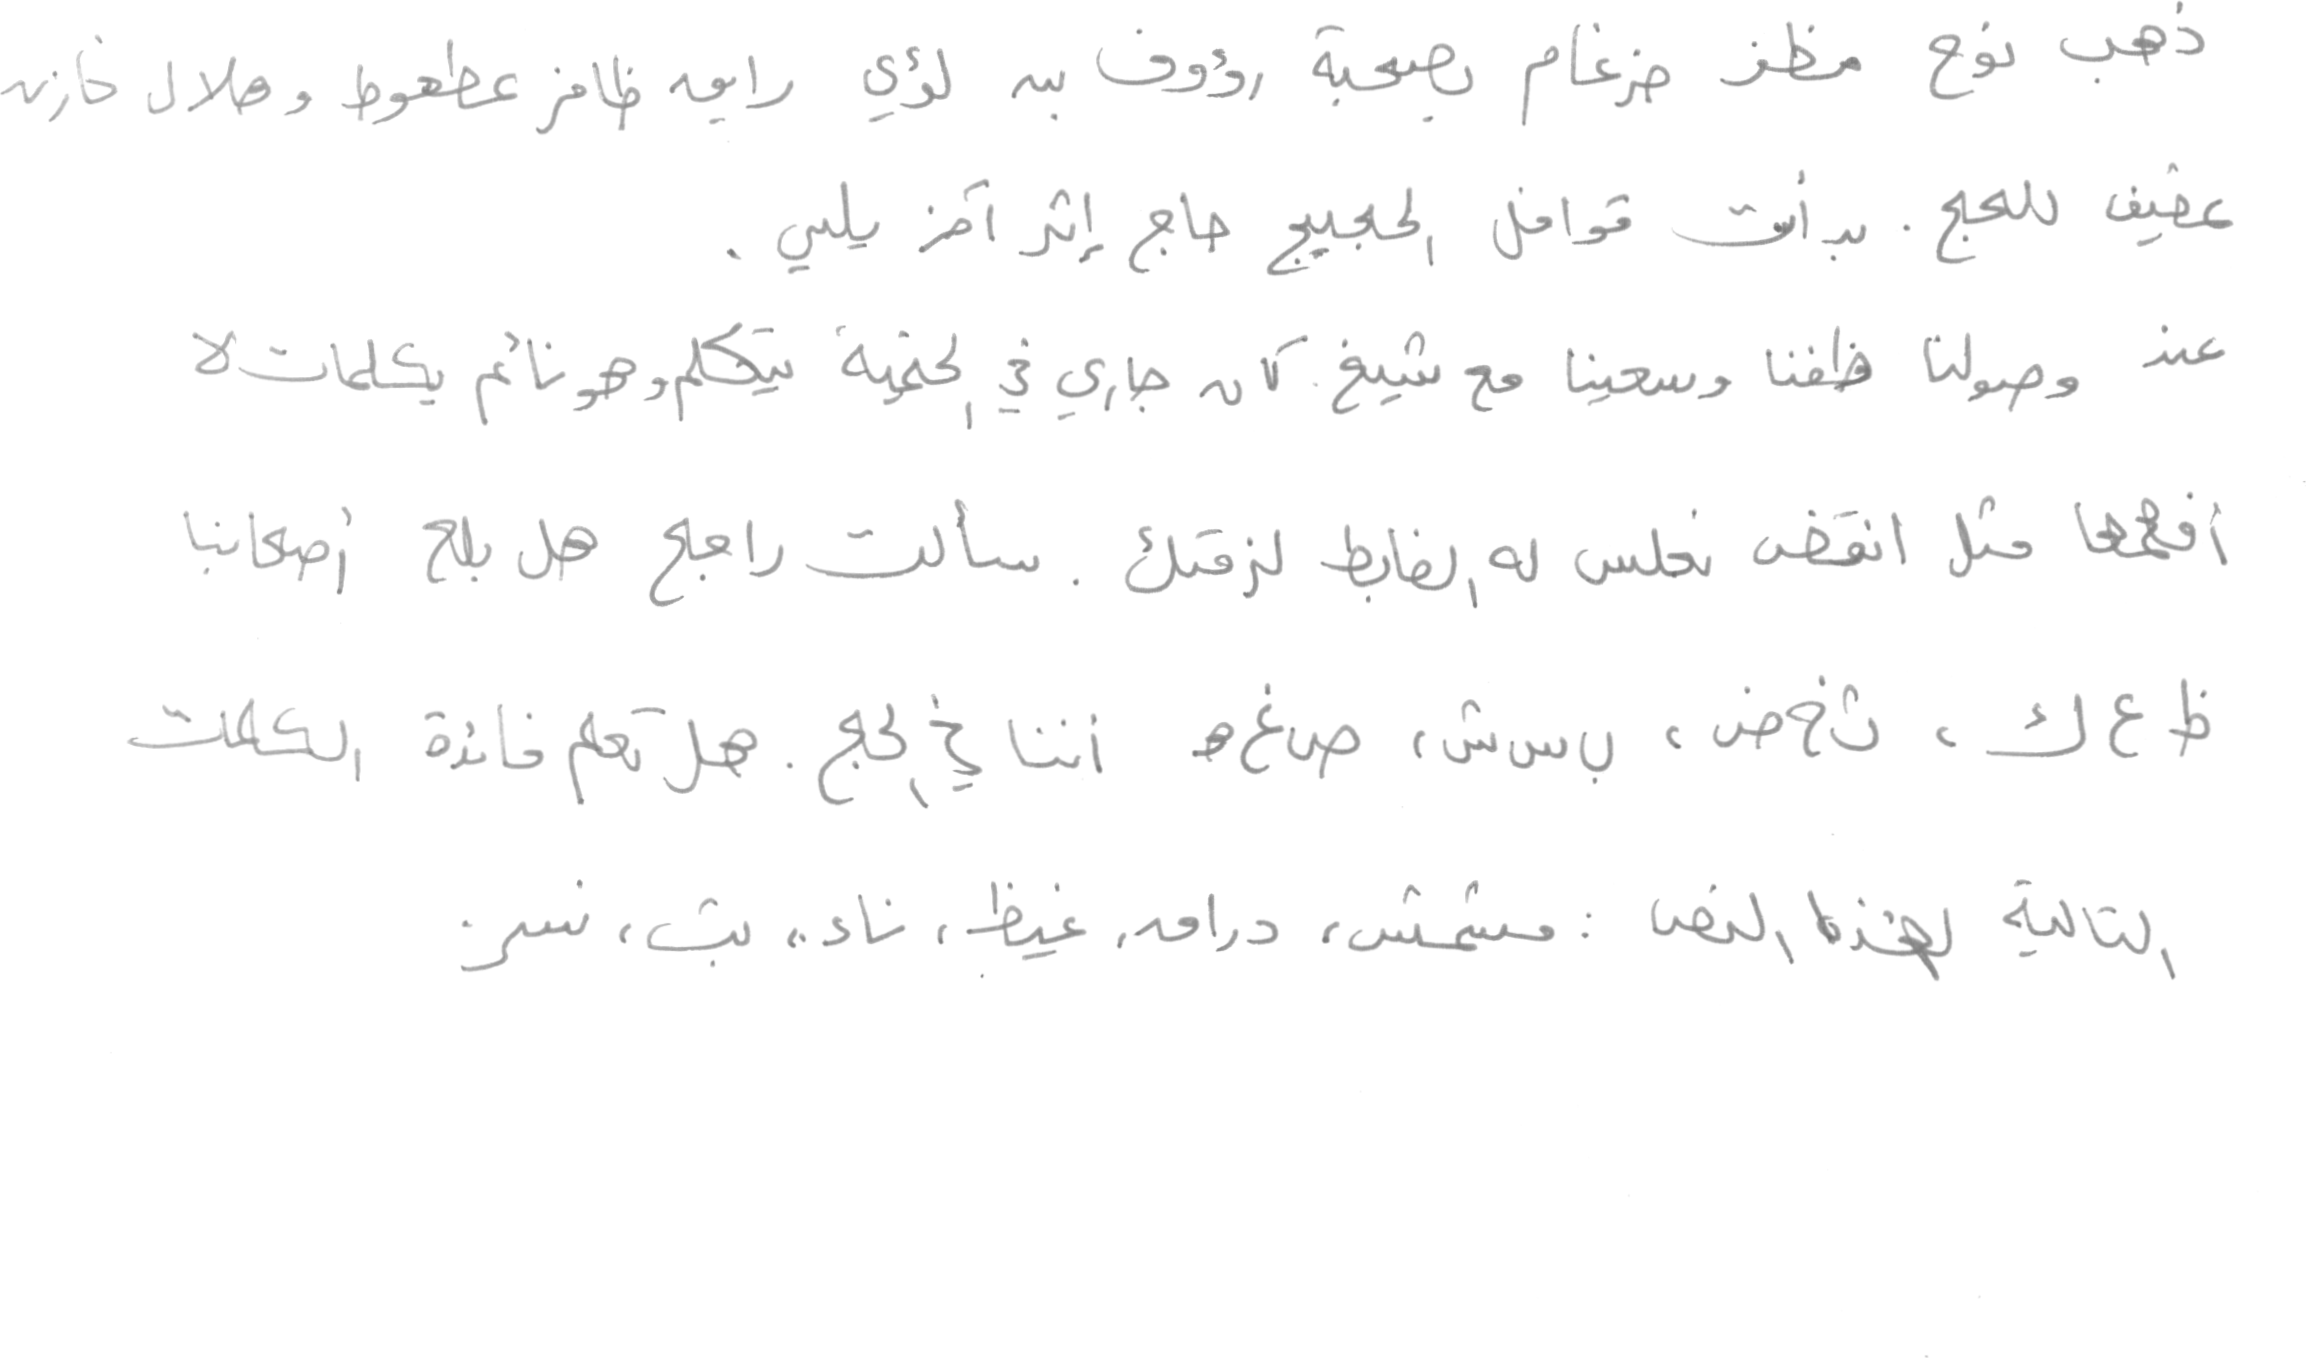 ذهب نوح مظفر ضرغام بصحبة رؤوف بن لؤي رايق ظافر عطعوط وهلال خازن
عفيف للحج. بدأت قوافل الحجيج حاج إثر آخر يلبي.
عند وصولنا طفنا وسعينا مع شيخ. كان جاري في الخيمة يتكلم وهو نائم بكلمات لا
أفهمها مثل انقض نجلس له الضابط لزقتك. سألت راجح هل بلح أصحابنا
ظ ع ك، ث خ ض، ب س ش، ص غ ه أثناء الحج. هل تعلم فائدة الكلمات
التالية لهذا النص: مشمش، دراق، غيظ، ناء، بث، نسر.